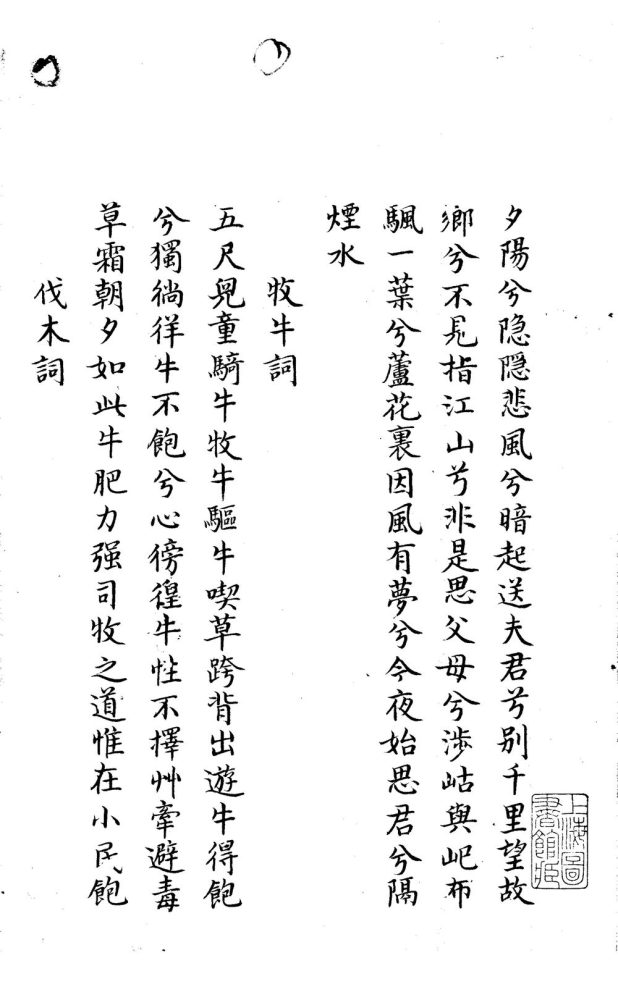 夕陽兮隐隱悲風兮暗起送夫君兮别千里望故
鄉兮不見指江山兮非是思父母兮涉岵與屺布
颿一葉兮蘆花裏因風有夢兮今夜始思君兮隔
煙水
牧牛詞
五尺兒童騎牛牧牛驅牛喫草跨背出遊牛得飽
兮獨徜徉牛不飽兮心徬徨牛性不擇艸牽避毒
草霜朝夕如此牛肥力强司牧之道惟在小民飽
伐木詞
上海圖
書館藏